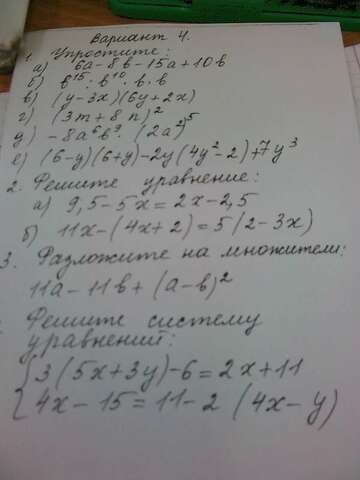 Вариант 4.
1. Упростите:
а) 6а - 8в - 15а + 10в
б) в¹⁵ : в¹⁰ · в · в
в) (у - 3х)(6у + 2х)
г) (3m + 8n)²
д) -8а⁶в⁹ · (2а²)⁵
е) (6-у)(6+у) - 2у(4у² - 2) + 7у³
2. Решите уравнение:
а) 9,5 - 5х = 2х - 2,5
б) 11х - (4х + 2) = 5(2 - 3х)
3. Разложите на множители:
11а - 11в + (а - в)²
Решите систему
уравнений:
{3(5х + 3у) - 6 = 2х + 11
{4х - 15 = 11 - 2(4х - у)